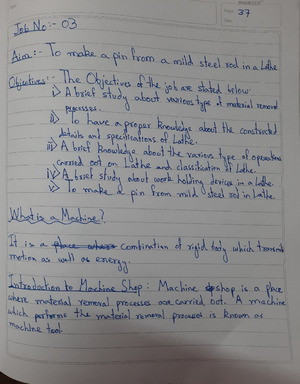 Page 37
Job No:- 03
Aim:- To make a pin from a mild steel rod in a Lathe
Objectives:- The Objectives of the job are stated below
i) A brief study about various type of material removal
processes.
ii) To have a proper knowledge about the constructed
details and specifications of Lathe.
iii) A brief knowledge about the various type of operations
carried out on Lathe and classification of Lathe.
iv) A brief study about work holding devices in a Lathe.
v) To make a pin from mild steel rod in Lathe.
What is a Machine?
It is a place where combination of rigid body which transmit
motion as well as energy.
Introduction to Machine Shop: Machine shop is a place
where material removal processes are carried out. A machine
which performs the material removal process is known as
machine tool.